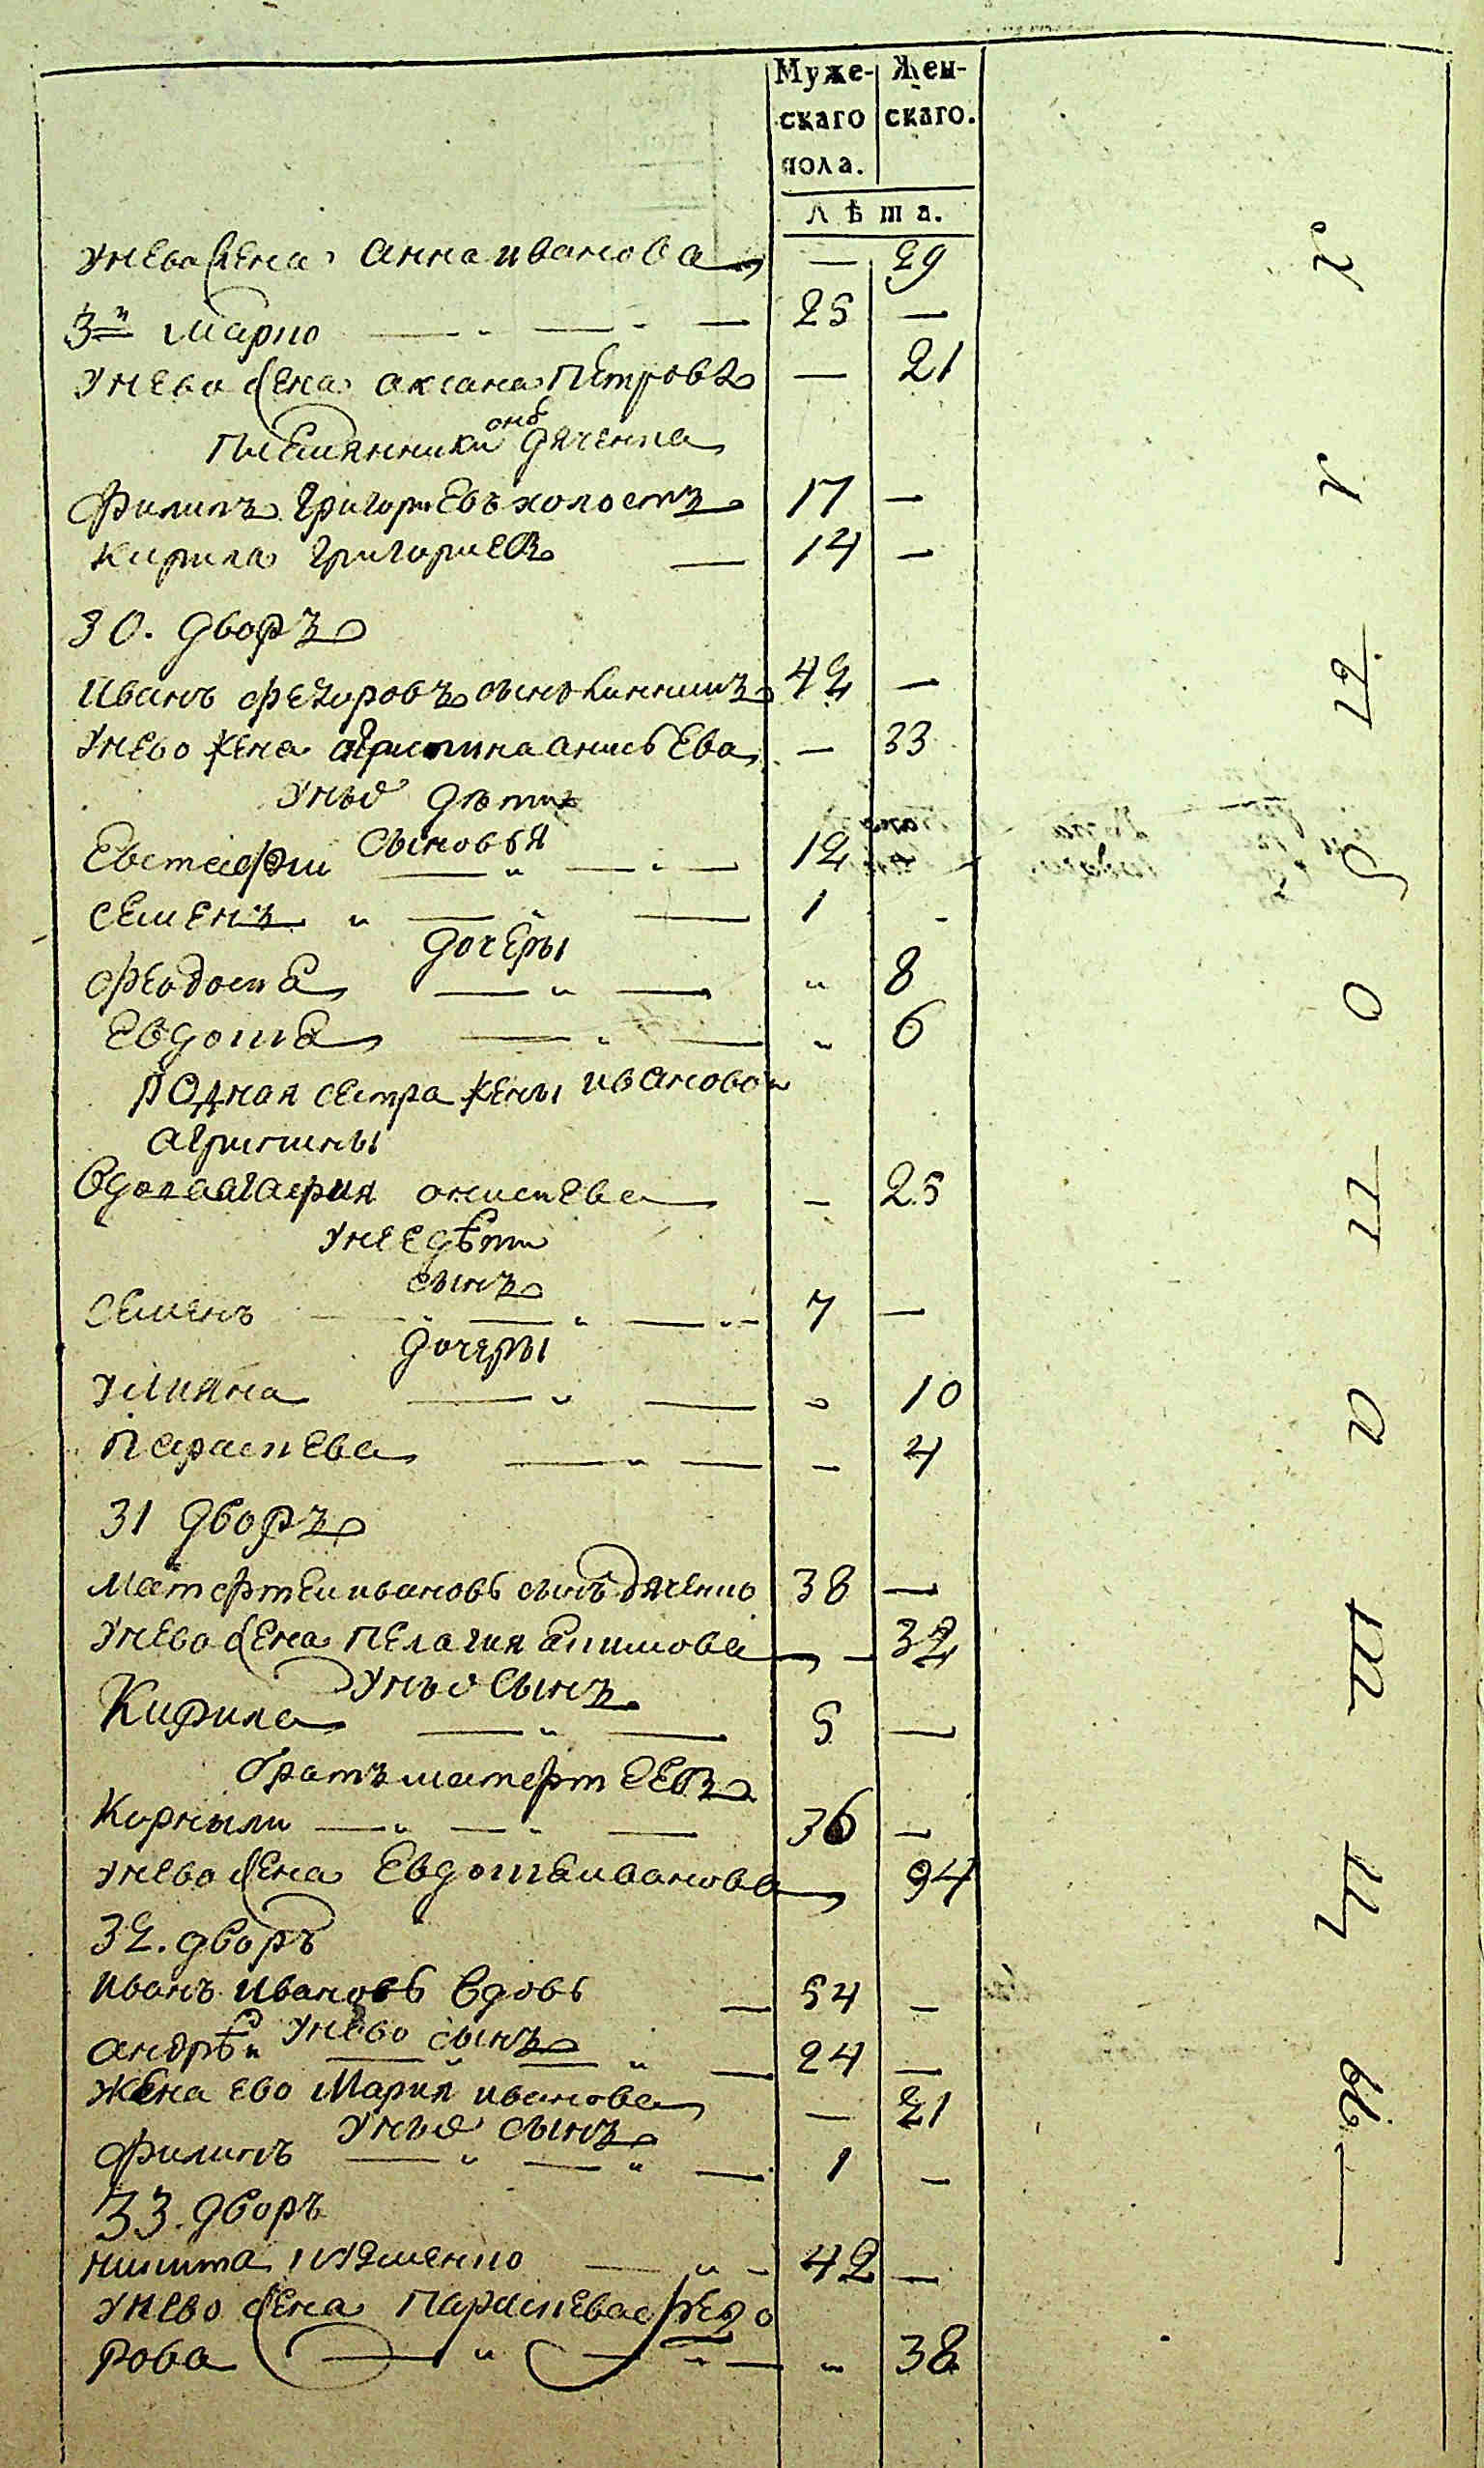 Муже- Жен-
скаго скаго.
пола.
Лѣта.
Унево жена Анна иванова — 29
3й Марко — 25 —
Унево жена аксана Петрова — 21
Племянники онб дяченка
Филипъ Григориевъ холостъ 17 —
Кирила Григориевъ — 14 —
30. дворъ
Иванъ федоровъ сынъ 42 —
Унево жена агрипина анисьева — 33
Унихъ дѣти
сыновья
Евстафий — 12 —
Семенъ — 1 -
дочеры
феодосиа — 8
Евдокиа — 6
Родная сестра жены ивановой
агрипины
Вдова агафия онисиева — 25
Унее дѣти
сынъ
Семенъ — 7 —
дочеры
Улияна — 10
Параскева — 4
31 дворъ
Матефтеи ивановъ сынъ дяченко 38 —
Унево жена Пелагия Екимова — 32
Унихъ сынъ
Кирила — 5 —
братъ матефтеевъ
Корныли — 36 —
унево жена Евдокиа иванова 94
32. дворъ
иванъ ивановъ вдовъ — 54 —
Унево сынъ
андрѣй — 24 —
жена ево Мария иванова — 21
Унихъ сынъ
филипъ — 1 —
33. дворъ
никита — 42 —
унево жена Параскева федо
рова — 38